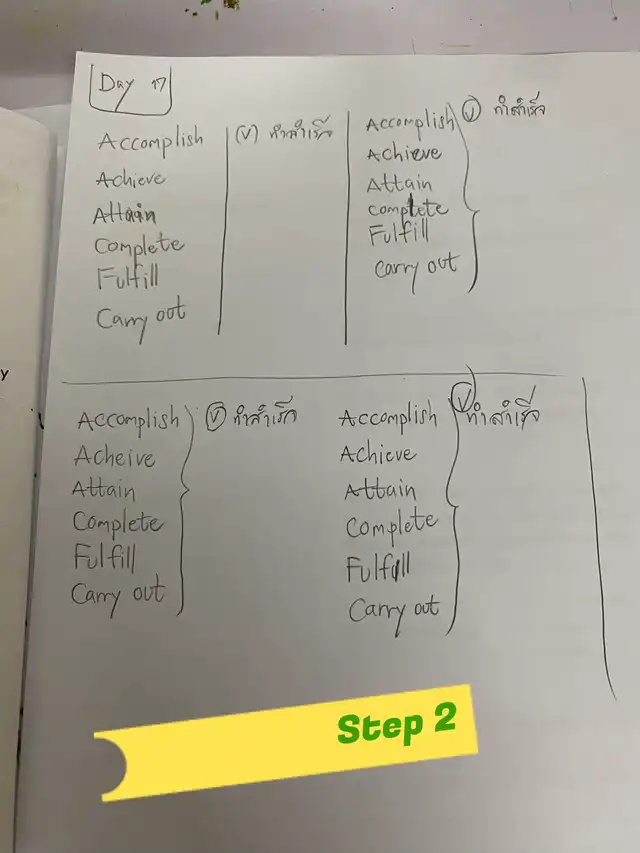 Day 17
Accomplish (v) ทำสำเร็จ
Achieve
Attain
Complete
Fulfill
Carry out
Accomplish (v) ทำสำเร็จ
Achieve
Attain
complete
Fulfill
Carry out
Accomplish (v) ทำสำเร็จ
Acheive
Attain
Complete
Fulfill
Carry out
Accomplish (v) ทำสำเร็จ
Achieve
Attain
Complete
Fulfill
Carry out
Step 2
y